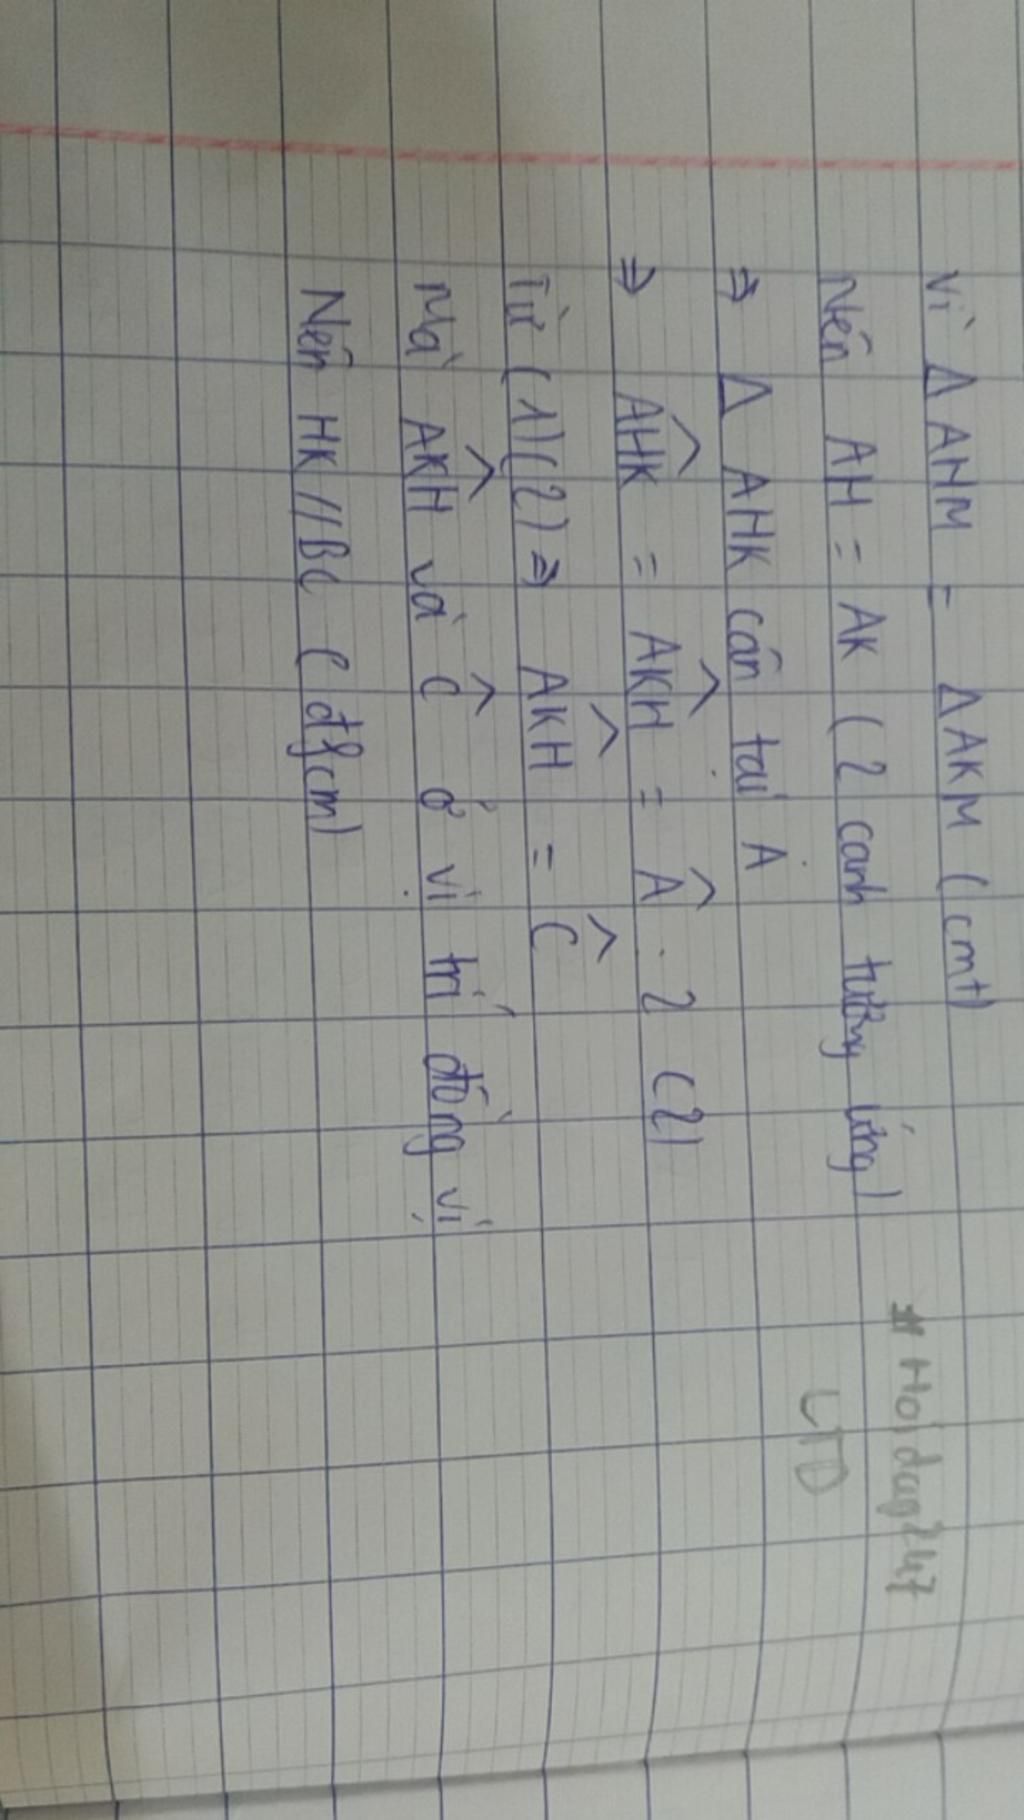 Vì Δ AHM = Δ AKM (cmt)
Nên AH = AK (2 cạnh tương ứng)
⇒ Δ AHK cân tại A
⇒ \widehat{AHK} = \widehat{AKH} = \widehat{A} : 2 (2)
Từ (1)(2) ⇒ \widehat{AKH} = \widehat{C}
Mà \widehat{AKH} và \widehat{C} ở vị trí đồng vị
Nên HK // BC (đfcm)
# Hoidap247
LTD